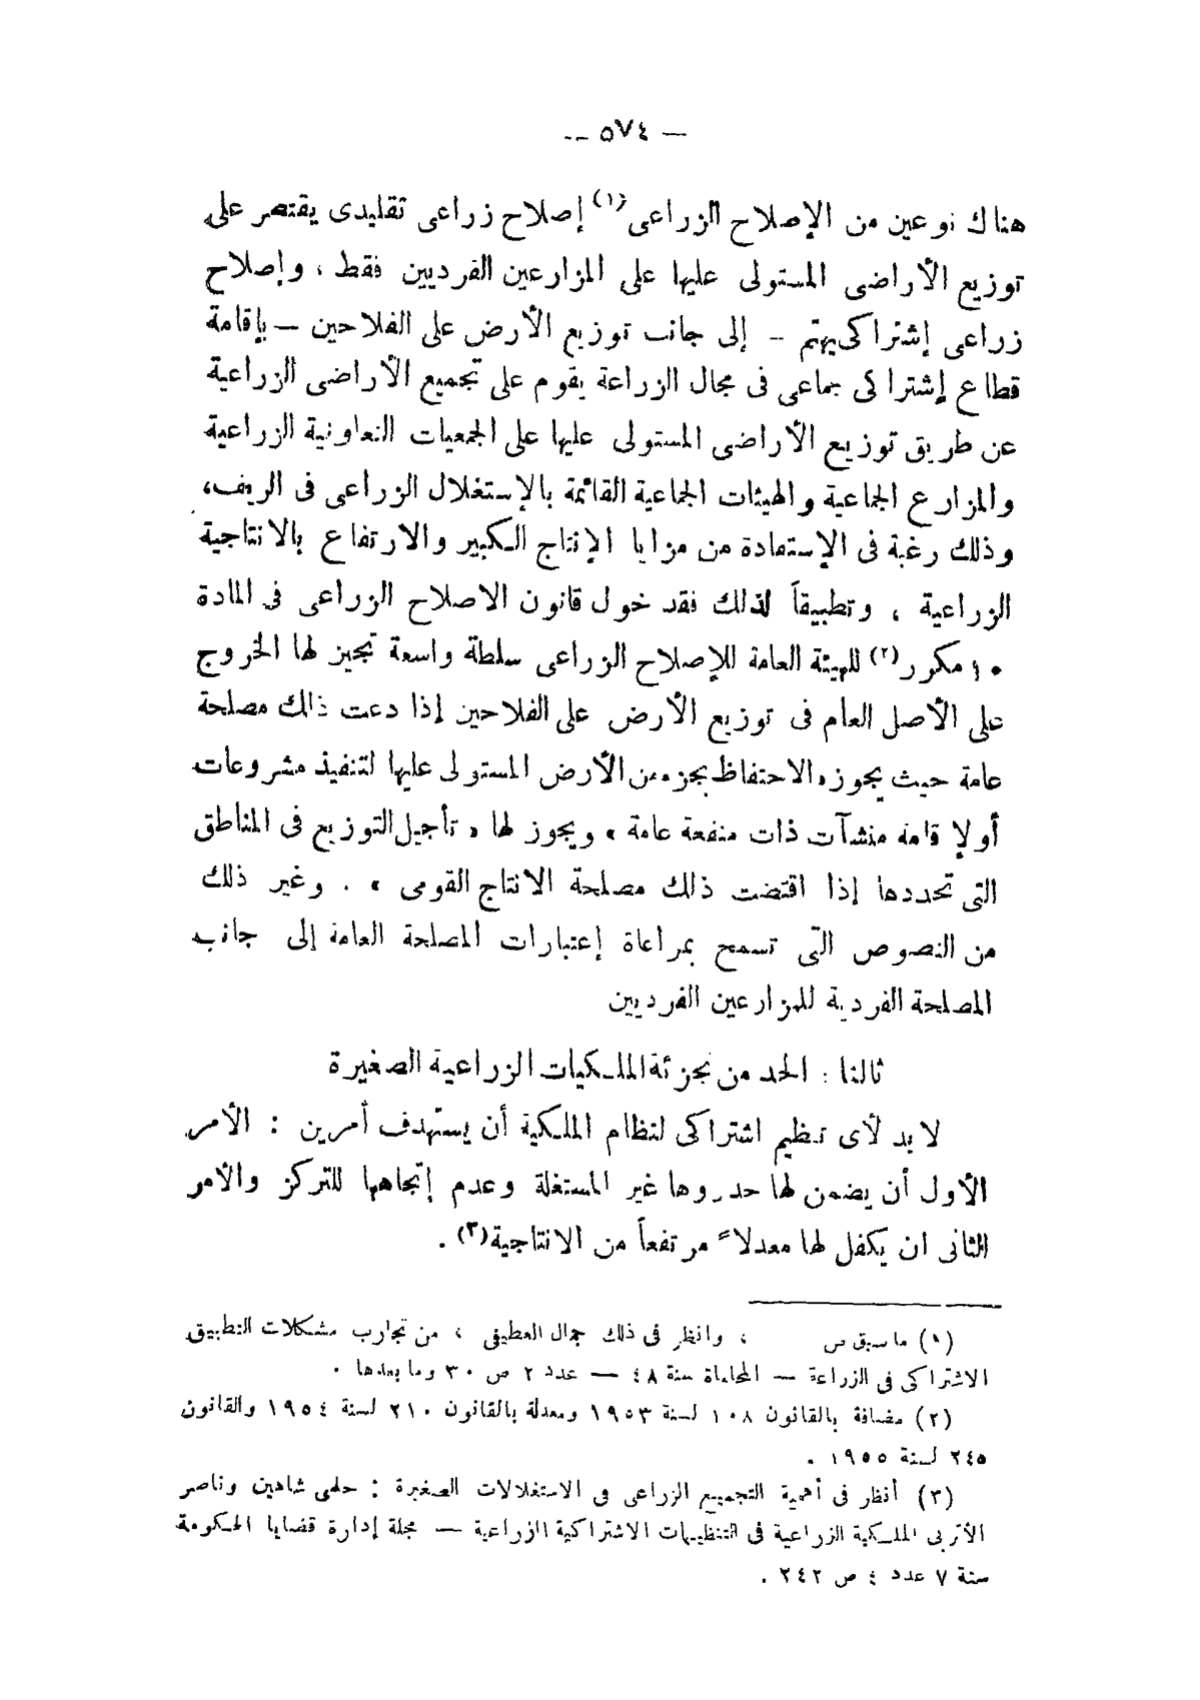 — ٥٧٤ —
هناك نوعين من الإصلاح الزراعى(١) إصلاح زراعى تقليدى يقتصر على
توزيع الأراضى المستولى عليها على المزارعين الفرديين فقط ، وإصلاح
زراعى إشتراكى يهتم - إلى جانب توزيع الأرض على الفلاحين — بإقامة
قطاع إشتراكى جماعى فى مجال الزراعة يقوم على تجميع الأراضى الزراعية
عن طريق توزيع الأراضى المستولى عليها على الجمعيات التعاونية الزراعية
والمزارع الجماعية والهيئات الجماعية القائمة بالإستغلال الزراعى فى الريف،
وذلك رغبة فى الإستفادة من مزايا الإنتاج الكبير والارتفاع بالانتاجية
الزراعية ، وتطبيقاً لذلك فقد خول قانون الاصلاح الزراعى فى المادة
١٠ مكرر(٢) للهيئة العامة للإصلاح الزراعى سلطة واسعة تجيز لها الخروج
على الأصل العام فى توزيع الأرض على الفلاحين إذا دعت ذلك مصلحة
عامة حيث يجوز « الاحتفاظ بجزء من الأرض المستولى عليها لتنفيذ مشروعات
أو لإقامة منشآت ذات منفعة عامة » ويجوز لها « تأجيل التوزيع فى المناطق
التى تحددها إذا اقتضت ذلك مصلحة الانتاج القومى » . وغير ذلك
من النصوص التى تسمح بمراعاة إعتبارات المصلحة العامة إلى جانب
المصلحة الفردية للمزارعين الفرديين
ثالثا : الحد من تجزئة الملكيات الزراعية الصغيرة
لا بد لأى تنظيم اشتراكى لنظام الملكية أن يستهدف أمرين : الأمر
الأول أن يضمن لها حدودها غير المستغلة وعدم إتجاهها للتركز والأمر
الثانى ان يكفل لها معدلاً مرتفعاً من الانتاجية(٣) .
(١) ما سبق ص ، وانظر فى ذلك جمال العطيفى ، من تجارب مشكلات التطبيق
الاشتراكى فى الزراعة — المحاماة سنة ٤٨ — عدد ٢ ص ٣٠ وما بعدها .
(٢) مضافة بالقانون ١٠٨ لسنة ١٩٥٣ ومعدلة بالقانون ٢١٠ لسنة ١٩٥٤ والقانون
٢٤٥ لسنة ١٩٥٥ .
(٣) أنظر فى أهمية التجميع الزراعى فى الاستغلالات الصغيرة : حلمى شاهين وناصر
الأتربى الملكية الزراعية فى التنظيمات الاشتراكية الزراعية — مجلة إدارة قضايا الحكومة
سنة ٧ عدد ٤ ص ٢٤٢ .